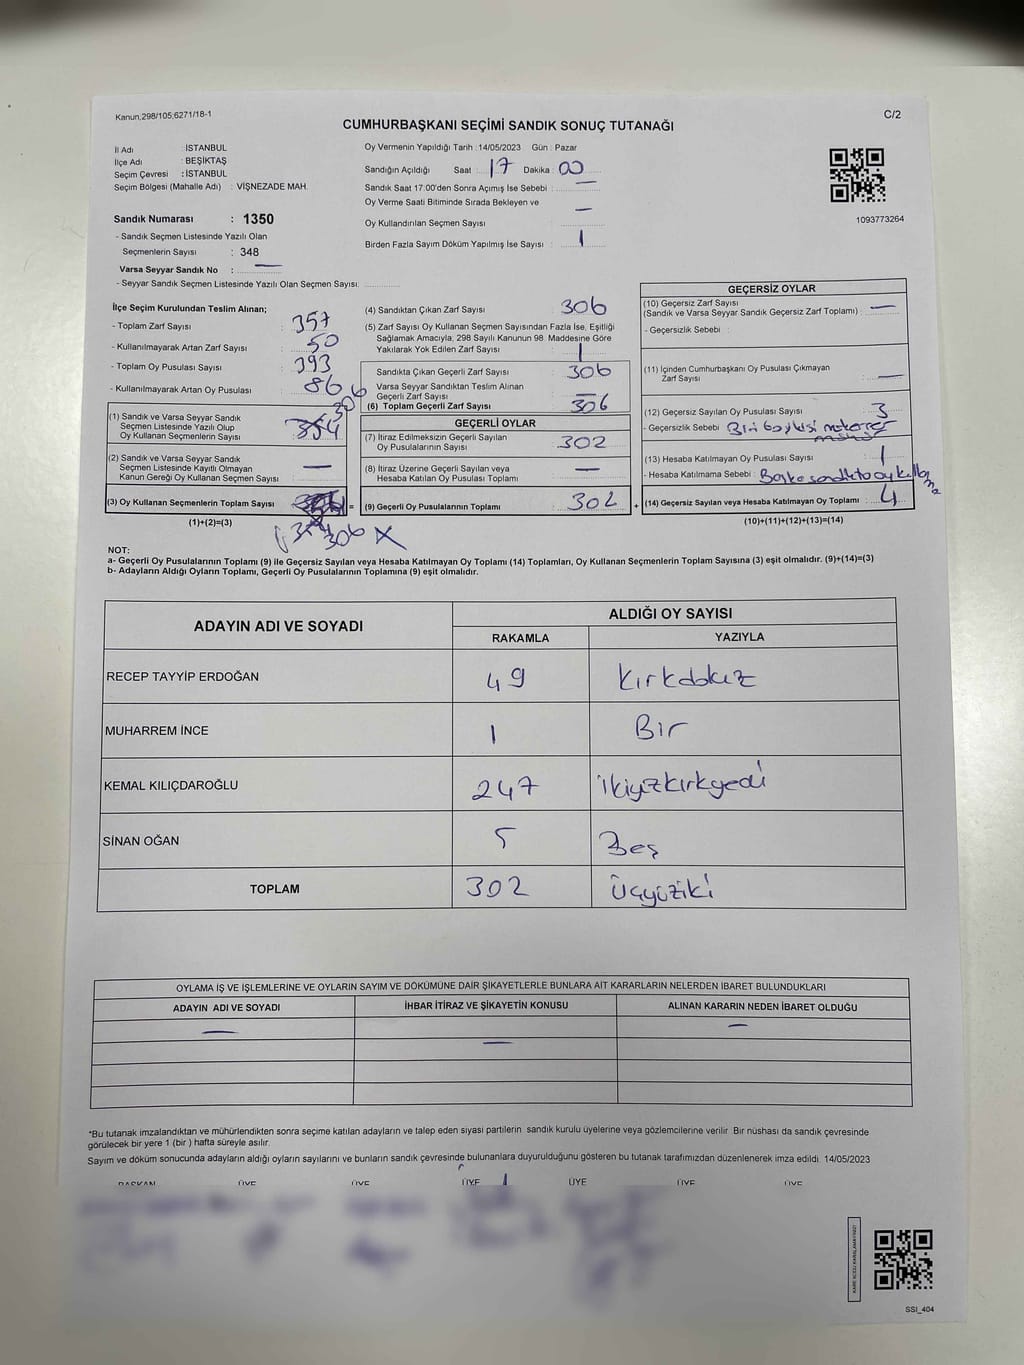 Kanun,298/105,6271/18-1
C/2
CUMHURBAŞKANI SEÇİMİ SANDIK SONUÇ TUTANAĞI
İl Adı : İSTANBUL
İlçe Adı : BEŞİKTAŞ
Seçim Çevresi : İSTANBUL
Seçim Bölgesi (Mahalle Adı) : VİŞNEZADE MAH.
Sandık Numarası : 1350
- Sandık Seçmen Listesinde Yazılı Olan
Seçmenlerin Sayısı : 348
Varsa Seyyar Sandık No : —
- Seyyar Sandık Seçmen Listesinde Yazılı Olan Seçmen Sayısı:
Oy Vermenin Yapıldığı Tarih :14/05/2023 Gün : Pazar
Sandığın Açıldığı Saat : 17 Dakika : 00
Sandık Saat 17.00'den Sonra Açımış İse Sebebi : —
Oy Verme Saati Bitiminde Sırada Bekleyen ve
Oy Kullandırılan Seçmen Sayısı : —
Birden Fazla Sayım Döküm Yapılmış İse Sayısı : 1
1093773264
İlçe Seçim Kurulundan Teslim Alınan;
- Toplam Zarf Sayısı : 357
- Kullanılmayarak Artan Zarf Sayısı : 50
- Toplam Oy Pusulası Sayısı : 393
- Kullanılmayarak Artan Oy Pusulası : 86
306
(1) Sandık ve Varsa Seyyar Sandık
Seçmen Listesinde Yazılı Olup
Oy Kullanan Seçmenlerin Sayısı
(2) Sandık ve Varsa Seyyar Sandık
Seçmen Listesinde Kayıtlı Olmayan
Kanun Gereği Oy Kullanan Seçmen Sayısı : —
(3) Oy Kullanan Seçmenlerin Toplam Sayısı =
(1)+(2)=(3)
306 X
(4) Sandıktan Çıkan Zarf Sayısı : 306
(5) Zarf Sayısı Oy Kullanan Seçmen Sayısından Fazla İse, Eşitliği
Sağlamak Amacıyla, 298 Sayılı Kanunun 98. Maddesine Göre
Yakılarak Yok Edilen Zarf Sayısı : 1
Sandıkta Çıkan Geçerli Zarf Sayısı : 306
Varsa Seyyar Sandıktan Teslim Alınan
Geçerli Zarf Sayısı : —
(6) Toplam Geçerli Zarf Sayısı : 306
GEÇERLİ OYLAR
(7) İtiraz Edilmeksizin Geçerli Sayılan
Oy Pusulalarının Sayısı : 302
(8) İtiraz Üzerine Geçerli Sayılan veya
Hesaba Katılan Oy Pusulası Toplamı : —
(9) Geçerli Oy Pusulalarının Toplamı : 302 +
GEÇERSİZ OYLAR
(10) Geçersiz Zarf Sayısı
(Sandık ve Varsa Seyyar Sandık Geçersiz Zarf Toplamı) : —
- Geçersizlik Sebebi :
(11) İçinden Cumhurbaşkanı Oy Pusulası Çıkmayan
Zarf Sayısı : —
(12) Geçersiz Sayılan Oy Pusulası Sayısı : 3
- Geçersizlik Sebebi
(13) Hesaba Katılmayan Oy Pusulası Sayısı : 1
- Hesaba Katılmama Sebebi : Başka sandıkta oy
(14) Geçersiz Sayılan veya Hesaba Katılmayan Oy Toplamı : 4
(10)+(11)+(12)+(13)=(14)
NOT:
a- Geçerli Oy Pusulalarının Toplamı (9) ile Geçersiz Sayılan veya Hesaba Katılmayan Oy Toplamı (14) Toplamları, Oy Kullanan Seçmenlerin Toplam Sayısına (3) eşit olmalıdır. (9)+(14)=(3)
b- Adayların Aldığı Oyların Toplamı, Geçerli Oy Pusulalarının Toplamına (9) eşit olmalıdır.
ADAYIN ADI VE SOYADI
ALDIĞI OY SAYISI
RAKAMLA YAZIYLA
RECEP TAYYİP ERDOĞAN 49 Kırkdokuz
MUHARREM İNCE 1 Bir
KEMAL KILIÇDAROĞLU 247 ikiyüzkırkyedi
SİNAN OĞAN 5 Beş
TOPLAM 302 Üçyüziki
OYLAMA İŞ VE İŞLEMLERİNE VE OYLARIN SAYIM VE DÖKÜMÜNE DAİR ŞİKAYETLERLE BUNLARA AİT KARARLARIN NELERDEN İBARET BULUNDUKLARI
ADAYIN ADI VE SOYADI İHBAR İTİRAZ VE ŞİKAYETİN KONUSU ALINAN KARARIN NEDEN İBARET OLDUĞU
— — —
*Bu tutanak imzalandıktan ve mühürlendikten sonra seçime katılan adayların ve talep eden siyasi partilerin sandık kurulu üyelerine veya gözlemcilerine verilir. Bir nüshası da sandık çevresinde
görülecek bir yere 1 (bir ) hafta süreyle asılır.
Sayım ve döküm sonucunda adayların aldığı oyların sayılarını ve bunların sandık çevresinde bulunanlara duyurulduğunu gösteren bu tutanak tarafımızdan düzenlenerek imza edildi. 14/05/2023
BAŞKAN ÜYE ÜYE ÜYE ÜYE ÜYE ÜYE
KARE KODU KARALAMAYINIZ!
SSI_404